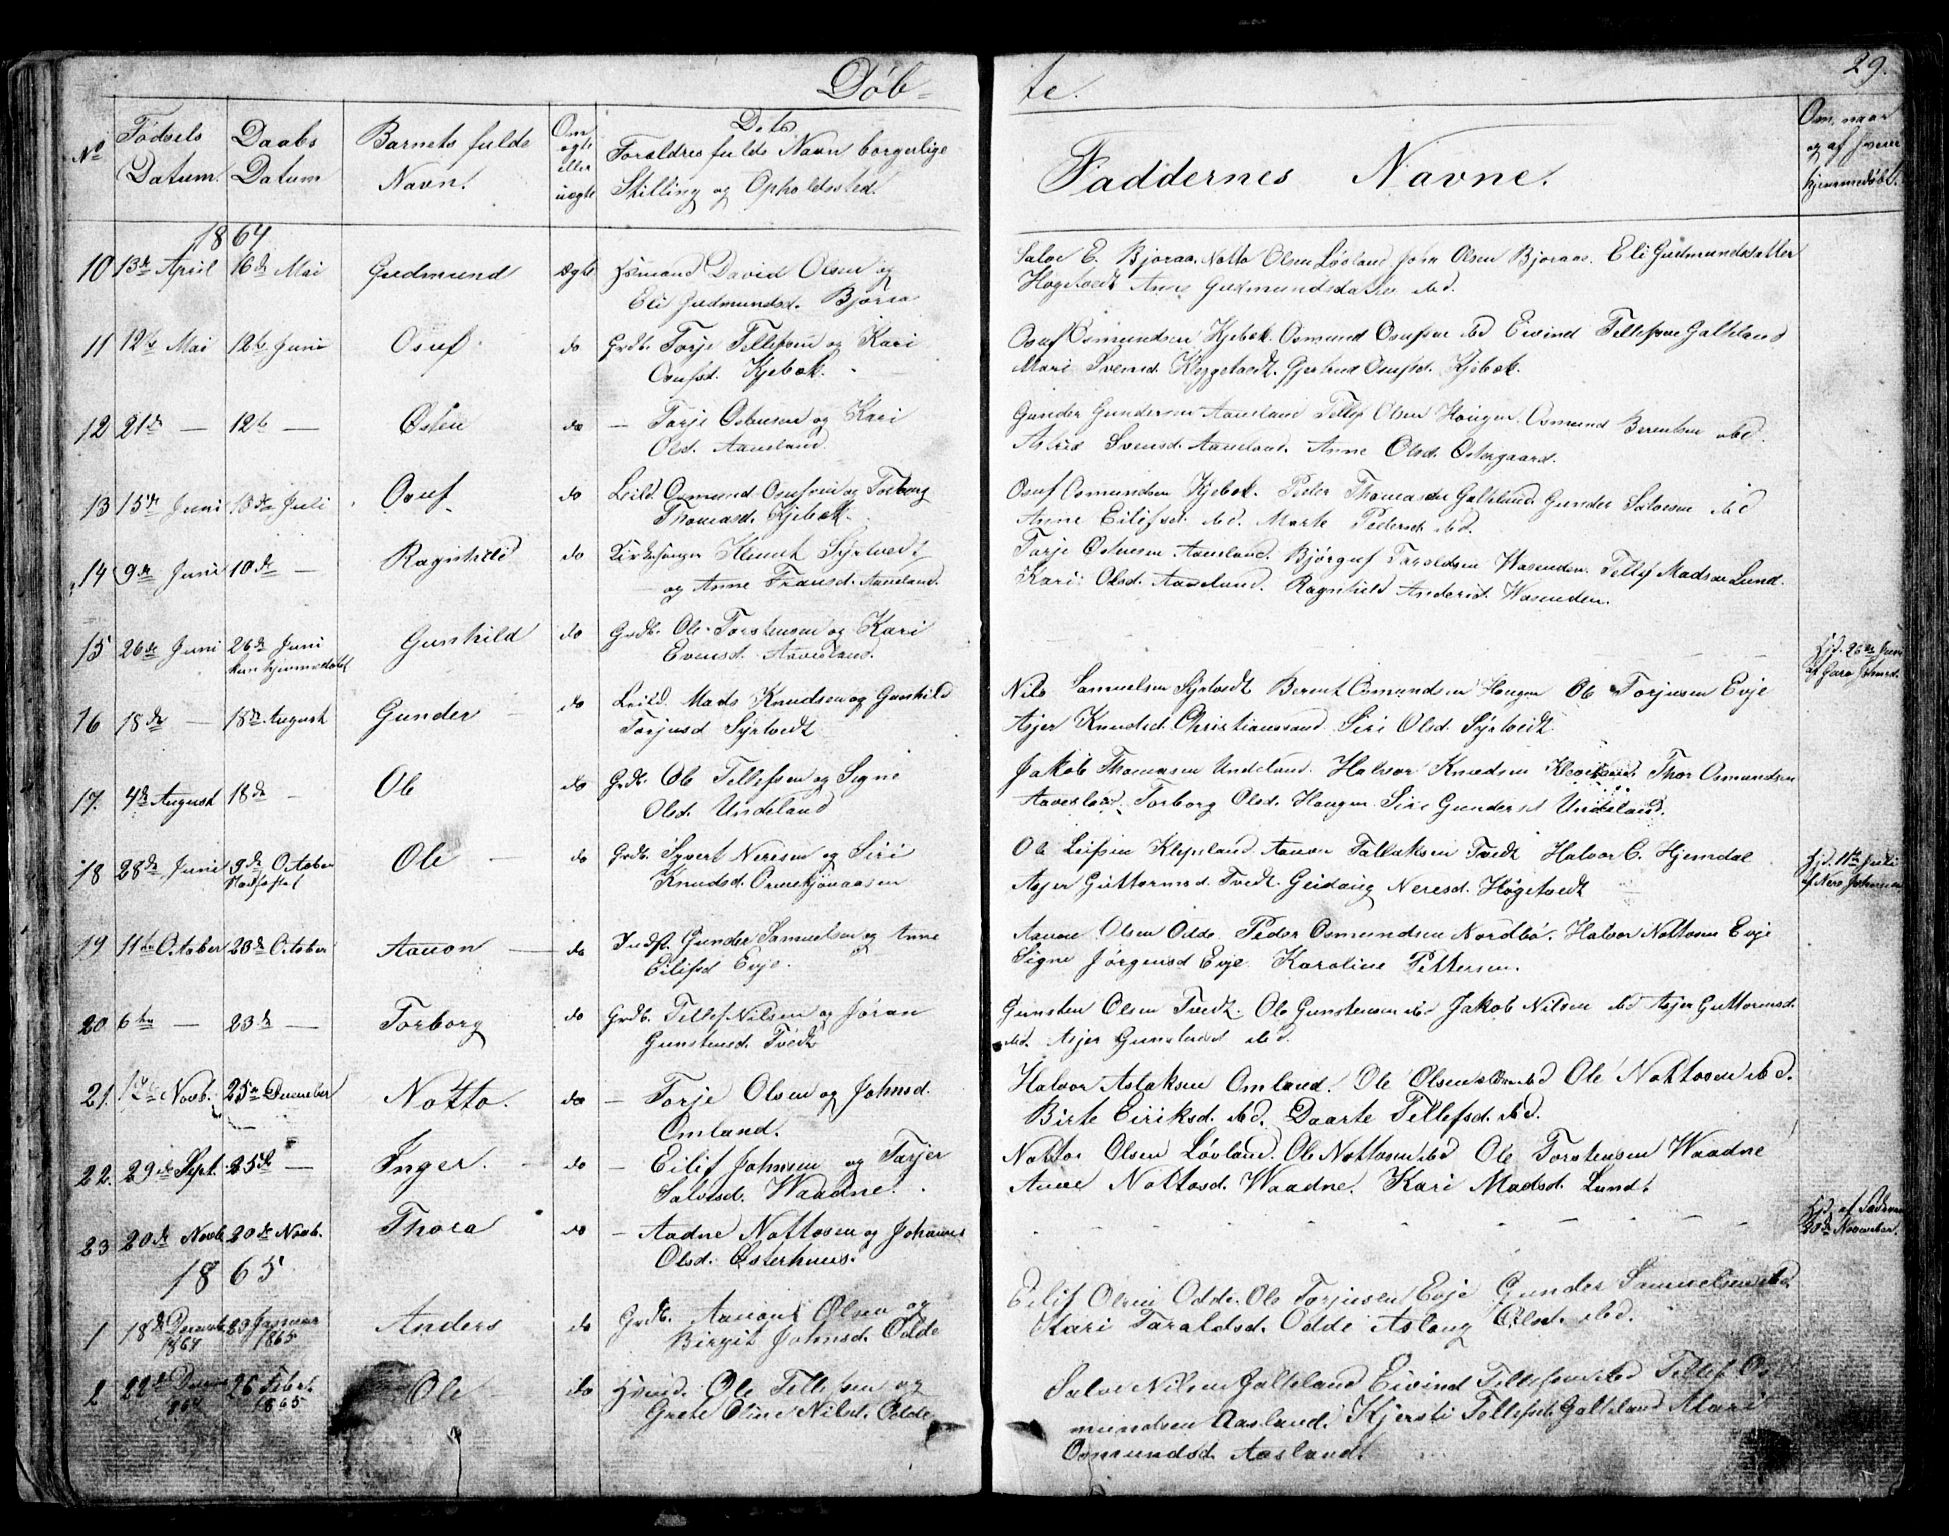 Døb-
te.
29.
No
Fødsels Datum.
Daabs Datum
Barnets fulde Navn.
Om ægte eller uægte
Dets Forældres fulde Navn borgerlige Stilling og Opholdssted.
Faddernes Navne.
Om, naar og af hvem hjemmedøbt.
1864
10 13de April 16de Mai Gudmund Ægte Husmand David Olsen og
Eli Gudmundsd. Bjoraa
Salve E. Bjoraa. Notto Olsen Løvland John Olsen Bjoraa. Eli Gudmundsdatter
Høgetvedt Anne Gudmundsdatter ibd.
11 12te Mai 12te Juni Osuf do Grdb. Torje Tellefsen og Kari
Osufsd. Kjebæk.
Osuf Osmundsen Kjebæk. Osmund Osufsen ibd Eivind Tellefsen Galteland
Mari Svensd. Gjertrud Osufsd. Kjebæk.
12 21de — 12te — Østen do — Torje Østensen og Kari
Olsd. Aaneland.
Gunder Gundersen Aaneland Tellef Olsen Hougen. Osmund Berentsen ibd.
Astrid Svensd. Aaneland. Anne Olsd. Østergaard.
13 15de Juni 13de Juli Osuf do Leild. Osmund Osufsen og Torborg
Thomasd. Kjebæk.
Osuf Osmundsen Kjebæk. Peder Thomasen Galteland Gunder Salvesen ibd
Anne Eilefsd. ibd. Marte Pedersd. ibd.
14 9de Juni 10de — Ragnhild do Kirkesanger Knut Syrtvedt
og Anne Fransd. Aaneland.
Torje Østensen Aaneland. Bjørguf Taraldsen Wasenden. Tellef Madsen Lund.
Kari Olsd. Aaneland. Ragnhild Andersd. Wasenden.
15 26de Juni 26de Juni Gunhild do Grdb. Ole Torstensen og Kari
kun hjemmedøbt
Evensd. Aavesland.
Hjd. 26de Juni
16 18de — 18de August Gunder do Leild. Mads Knudsen og Gunhild
Torjusd Syrtvedt
Nils Samuelsen Syrtvedt Berent Osmundsen Hougen Ole Torjusen Evje
Asjer Knudsd. Christianssand. Siri Olsd. Syrtvedt
17. 4de August 18de — Ole do Grdb. Ole Tellefsen og Signe
Olsd. Undeland
Jakob Thomasen Undeland. Halvor Knudsen Thor Osmundsen
Aavesland. Torborg Olsd. Hougen Siri Gundersd Undeland.
18 28de Juni 9de October Ole — do Grdb. Syvert Neresen og Siri
Stadfæstet
Knudsd.
Ole Leifsen Klepsland Aanon Tallaksen Tvedt Halvor C. Hjemdal
Asjer Guttormsd. Tvedt. Geidaug Neresd. Høgetvedt
Hjd. 11te Juli
af Nere Johnsen
19 11te October 23de October Aanon — do Indst. Gunder Samuelsen og Anne
Eilifsd Evje.
Aanon Olsen Odde. Peder Osmundsen Nordbø. Halvor Nottosen Evje
Signe Jørgensd Evje. Karoline Pettersen.
20 6te — 23de — Torborg do Grdb. Tellef Nilsen og Jøran
Gunstensd. Tvedt
Gunsten Olsen Tvedt. Ole Gunstensen ibd Jakob Nilsen ibd Asjer Guttormsd.
ibd. Asjer Gunstensd ibd.
21. Novb. 25de December Notto. do — Torje Olsen og Johnsd.
Omland.
Halvor Aslaksen Omland. Ole Olsen ibd Ole Nottosen ibd.
Birte Eiriksd. ibd. Daarte Tellefsd. ibd.
22. 29de Sept. 25de — Inger. do — Eilif Johnsen og Tarjer
Salvesd. Waadne.
Nottov Olsen Løvland. Ole Nottosen ibd Ole Torstensen Waadne
Anne Nottosd. Waadne. Kari Madsd. Lund.
23 20de Novb. 20de Novb. Thora do — Aadne Nottosen og Johanne
Olsd. Østerhuus.
Hjd. af Faderen
20de November.
1865
1 18de Decemb. 1864 29 Januar 1865 Anders do Grdb. Aanon Olsen og
Birgit Johnsd. Odde
Eilif Olsen Odde. Ole Torjusen Evje Gunder Samuelsen ibd
Kari Taraldsd. Odde Aslaug Olsd. ibd.
2 22de Decemb 1864 26 Febr. 1865 Ole do Husmd. Ole Tellefsen og
Grete Oline Nilsd. Odde
Salve Nilsen Galteland Eivind Tellefsen ibd Tellef Os-
mundsen Aasland. Kjersti Tellefsd. Galteland Mari
Osmundsd. Aasland.